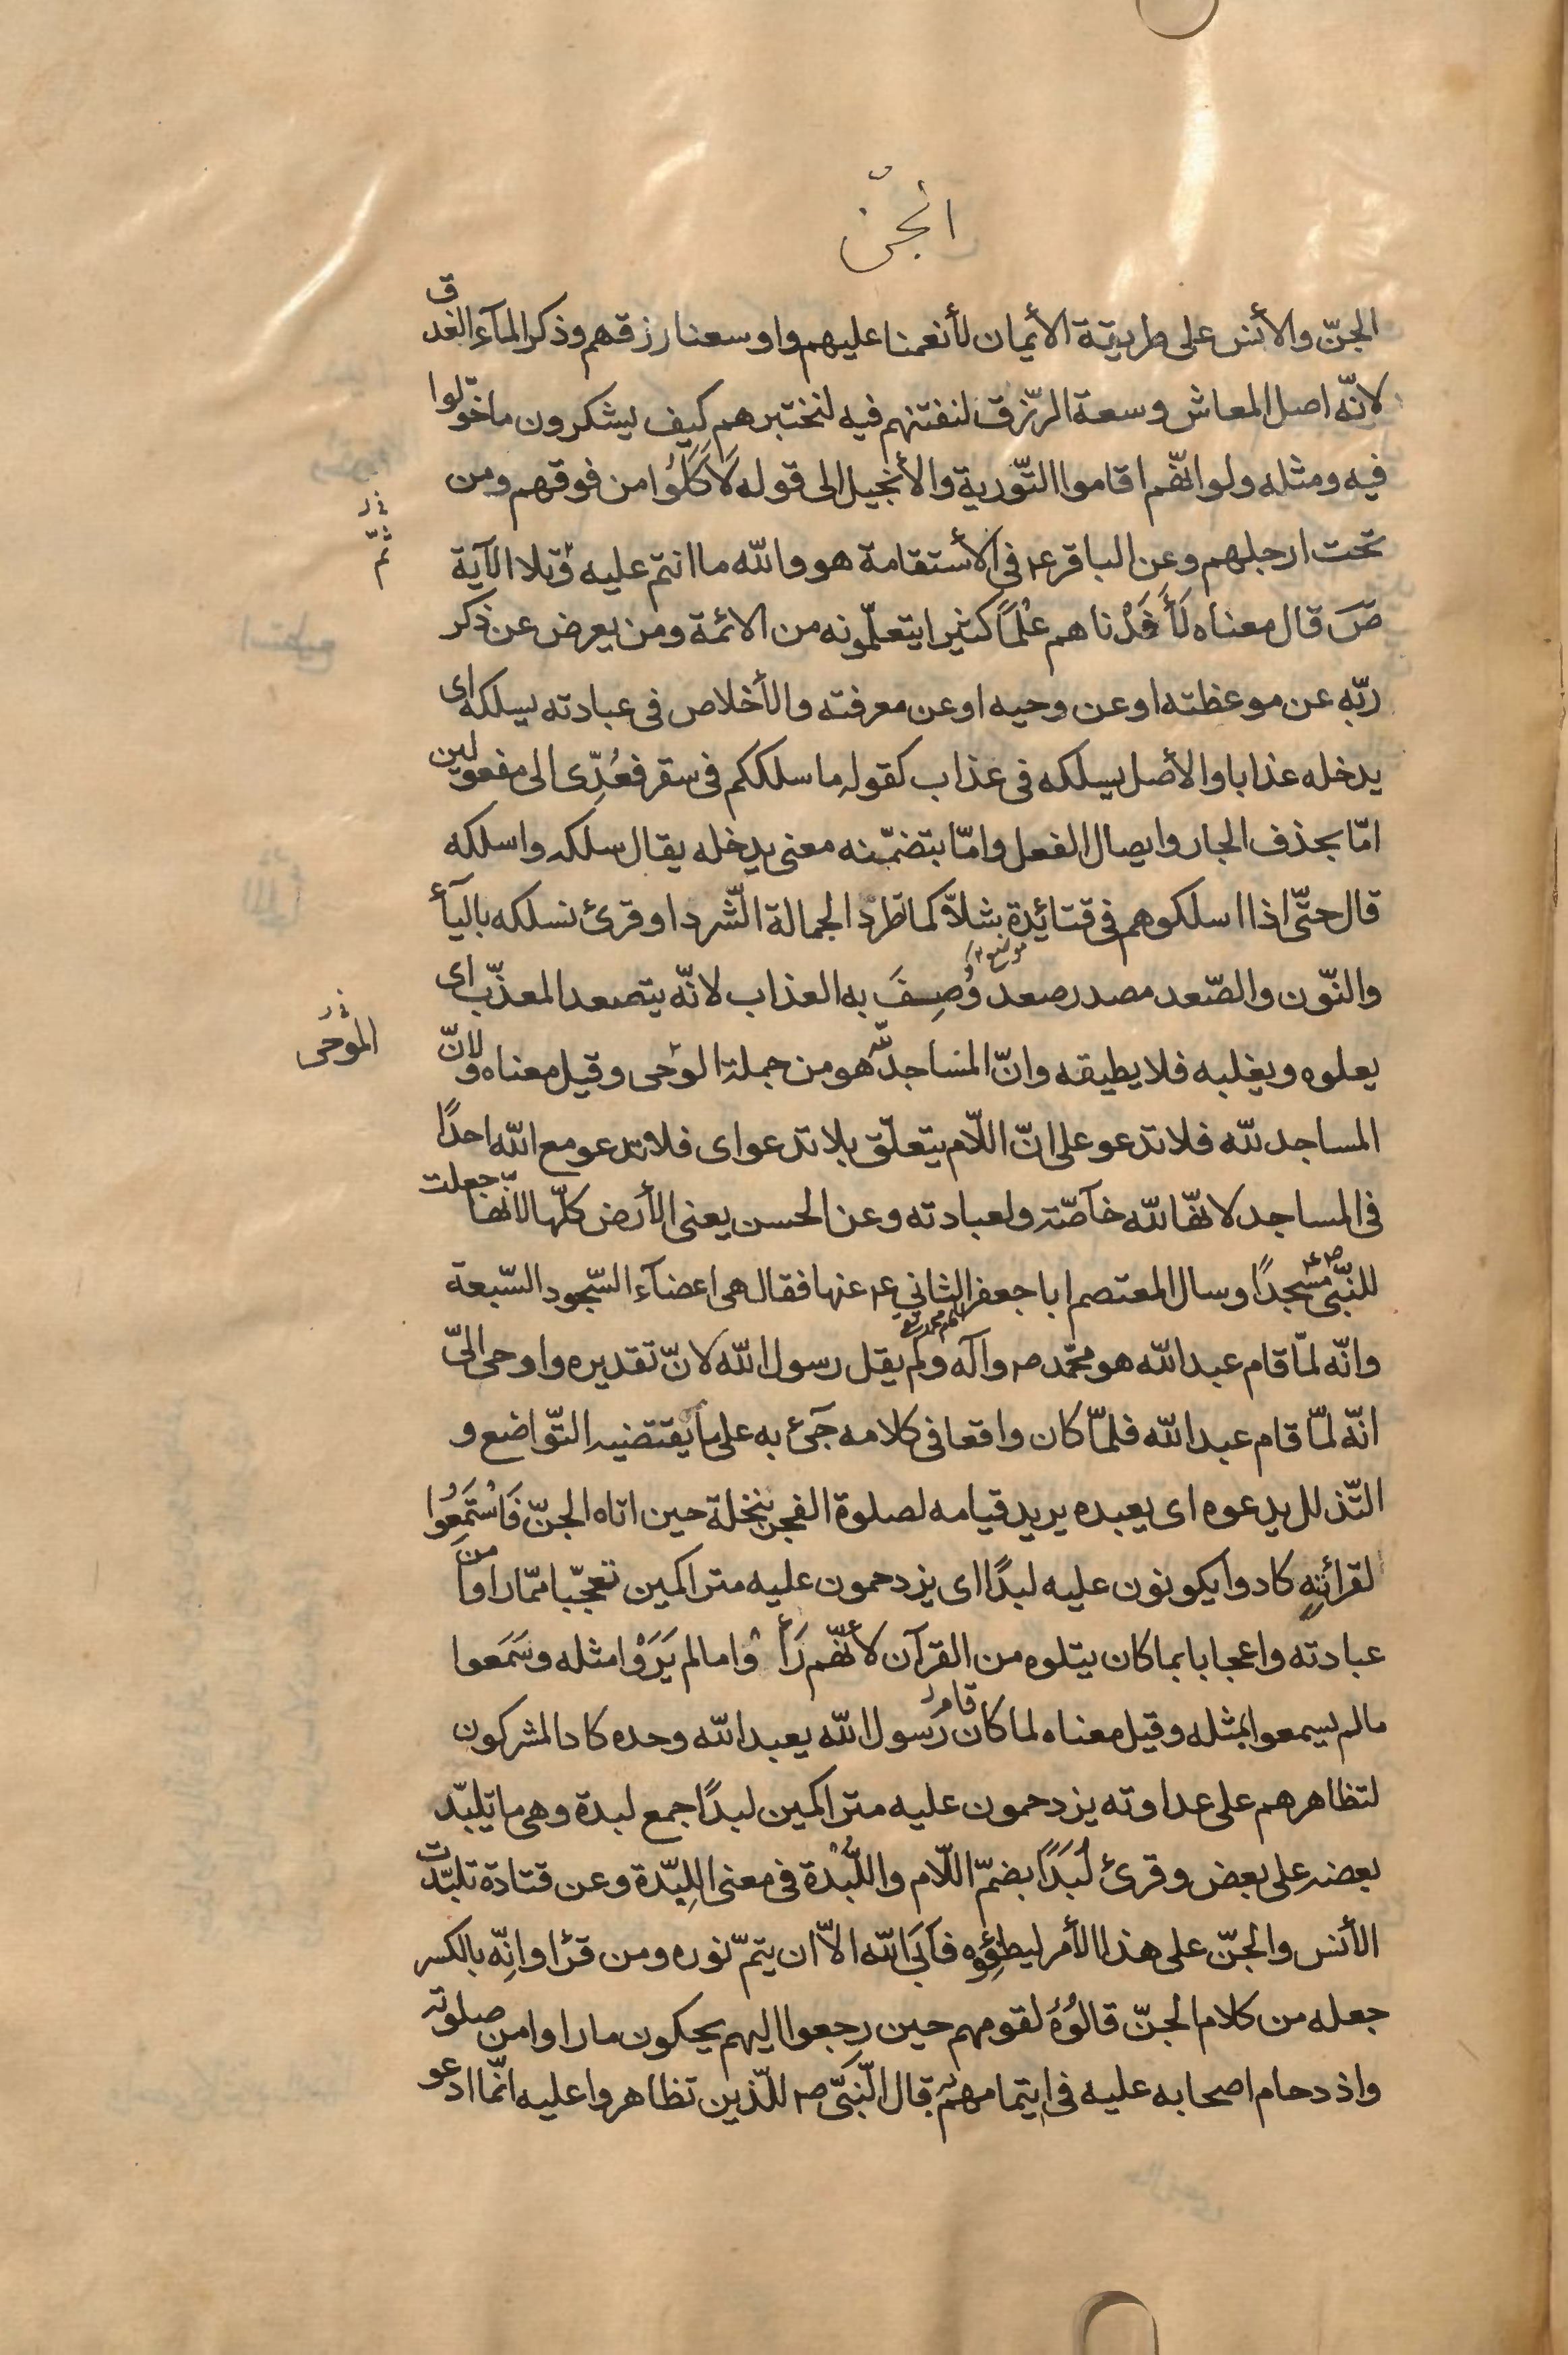 الجنّ
الجنّ والأنس على طريقة الأيمان لأنعمنا عليهم واوسعنا رزقهم وذكر المآء الغدق
لانّه اصل المعاش وسعة الرّزق لنفتنهم فيه لنختبرهم كيف يشكرون ما خوّلوا
فيه ومثله ولو انّهم اقاموا التّورية والأنجيل الى قوله لَأَكَلُوا من فوقهم ومن
تحت ارجلهم وعن الباقر ع في الأستقامة هو والله ما انتم عليه وتلا الآية
ثمّ
صَ قال معناه لَأَفَدْناهم عِلْمًا كثيرا يتعلّمونه من الائمة ومن يعرض عن ذكر
ربّهِ عن موعظته او عن وحيه او عن معرفته والأخلاص في عبادته يسلكه اى
يدخله عذابا والأصل يسلكه في عذاب كقوله ما سلككم في سقر فعُدِّى الى مفعولين
امّا بحذف الجار وايصال الفعل وامّا بتضمّنه معنى يدخله يقال سلكه واسلكه
قال حتّى اذا اسلكوهم في قتائدة بشلاًّ كما تطرد الجمالة الشّردا وقرئ نسلكه باليآء
والنّون والصّعد مصدر صعد وُصِفَ به العذاب لانّه يتصعد المعذّب اى
يعلوه ويغلبه فلا يطيقه وانّ المساجد للّه هو من جملة الوحى وقيل معناه ولانّ
الموحى
المساجد للّه فلا تدعو على انّ اللّام يتعلّق بلا تدعوا اى فلا تدعو مع اللّه احدًا
في المساجد لانّها للّه خآصّة ولعبادته وعن الحسن يعنى الأرض كلّها لانّها جعلت
للنّبىّ ص مسجدًا وسال المعتصم ابا جعفر الثاني ع عنها فقال هى اعضآء السّجود السّبعة
وانّه لمّا قام عبد اللّه هو محمّد ص وآله ولم يقل رسول اللّه لانّ تقديره واوحى الىّ
انّه لمّا قام عبد اللّه فلمّا كان واقعا في كلامه جئ به على ما يقتضيه التّواضع و
التّذلل يدعوه اى يعبده يريد قيامه لصلوة الفجر بنخلة حين اتاه الجنّ فَاسْتَمَعُوا
لقرائته كادوا يكونون عليه لبدًا اى يزدحمون عليه متراكمين تعجّبا ممّا راوا من
عبادته واعجابا بما كان يتلوه من القرآن لأنّهم رَأَوْا ما لم يَرَوْا مثله وسَمَعوا
مالم يسمعوا بمثله وقيل معناه لما كان قام رسول اللّه يعبد اللّه وحده كاد المشركون
لتظاهرهم على عداوته يزدحمون عليه متراكمين لبدًا جمع لبدة وهى ما تلبّد
بعضه على بعض وقرئ لُبَدًا بضمّ اللّام واللُّبْدة في معنى اللِبّدة وعن قتادة تلبّدت
الأنس والجنّ على هذا الأمر ليطفِؤه فآبَى اللّه الاّ ان يتمّ نوره ومن قرٔا وانِّه بالكسر
جعله من كلام الجنّ قالُوُه لقومهم حين رجعوا اليهم يحكون ما راوا من صلوته
واذدحام اصحابه عليه في ايتمامهم به قال النّبىّ ص للّذين تظاهروا عليه انّما ادعو